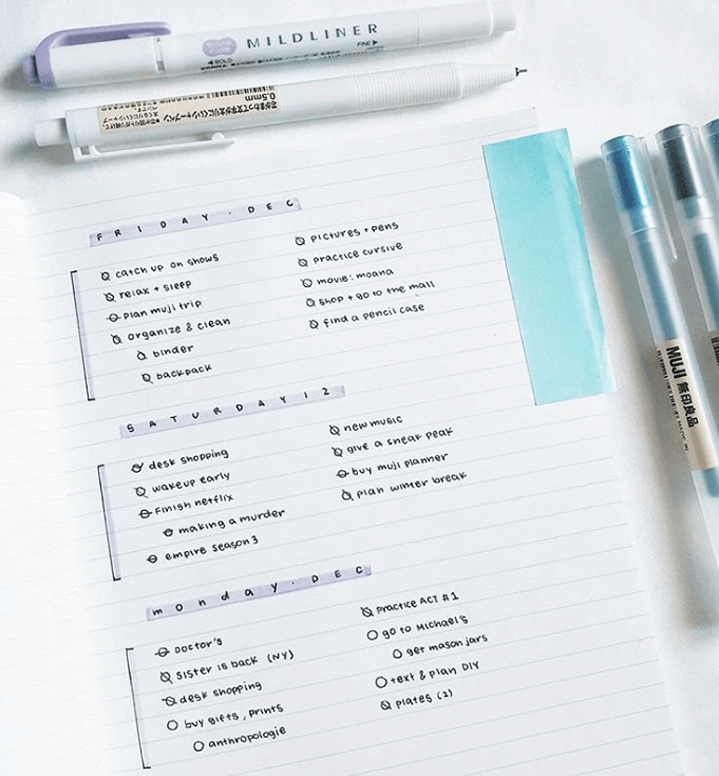 MILDLINER
BOLD
FINE
0.5mm
FRIDAY·DEC
catch up on shows
relax + sleep
plan muji trip
organize & clean
binder
backpack
pictures + pens
practice cursive
movie: moana
shop + go to the mall
find a pencil case
SATURDAY12
desk shopping
wakeup early
Finish netflix
making a murder
empire season 3
new music
give a sneak peak
buy muji planner
plan winter break
monday·DEC
Doctor's
sister is back (NY)
desk shopping
buy gifts, prints
anthropologie
practice ACT #1
go to Michael's
get mason jars
text & plan DIY
plates (2)
MUJI 無印良品